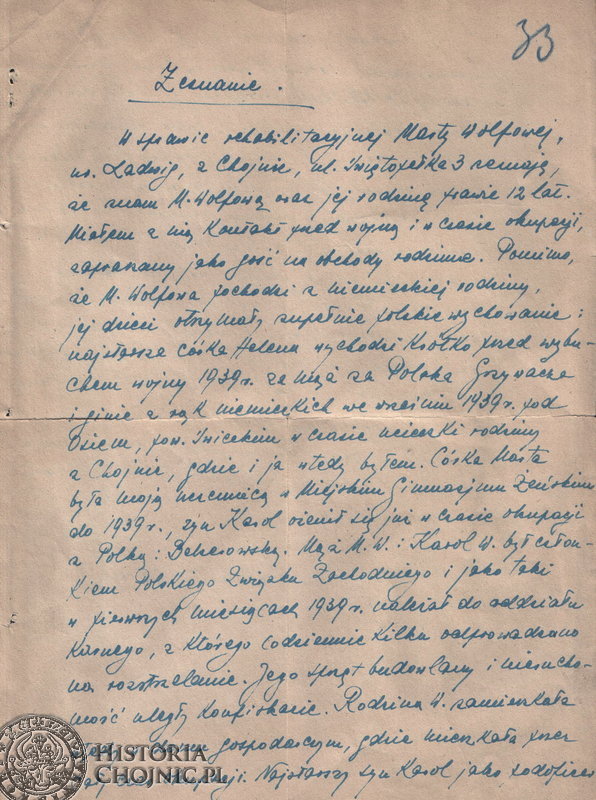 33
Zeznanie.
W sprawie rehabilitacyjnej Marty Wolfowej,
ur. Ladwig, z Chojnic, ul. Świętopełka 3 zeznaję,
że znam M. Wolfową oraz jej rodzinę prawie 12 lat.
Miałem z nią kontakt przed wojną i w czasie okupacji,
zapraszany jako gość na obchody rodzinne. Pomimo,
że M. Wolfowa pochodzi z niemieckiej rodziny,
jej dzieci otrzymały zupełnie polskie wychowanie:
najstarsza córka Helena wychodzi krótko przed wybu-
chem wojny 1939 r. za mąż za Polaka Grzywacza
i ginie z rąk niemieckich we wrześniu 1939 r. pod
Osiem, pow. Świeckim w czasie ucieczki rodziny
z Chojnic, gdzie i ja wtedy byłem. Córka Marta
była moją uczennicą w Miejskim Gimnazjum Żeńskim
do 1939 r., syn Karol ożenił się już w czasie okupacji
z Polką: . Mąż M. W. i Karol W. był człon-
kiem Polskiego Związku Zachodniego i jako taki
w pierwszych miesiącach 1939 r. należał do oddziału
karnego, z którego codziennie kilku odprowadzano
na rozstrzelanie. Jego sprzęt budowlany i nierucho-
mość uległy konfiskacie. Rodzina W. zamieszkała
gospodarczym, gdzie mieszkała przez
okupacji. Najstarszy syn Karol jako podoficer
HISTORIA
CHOJNIC.PL